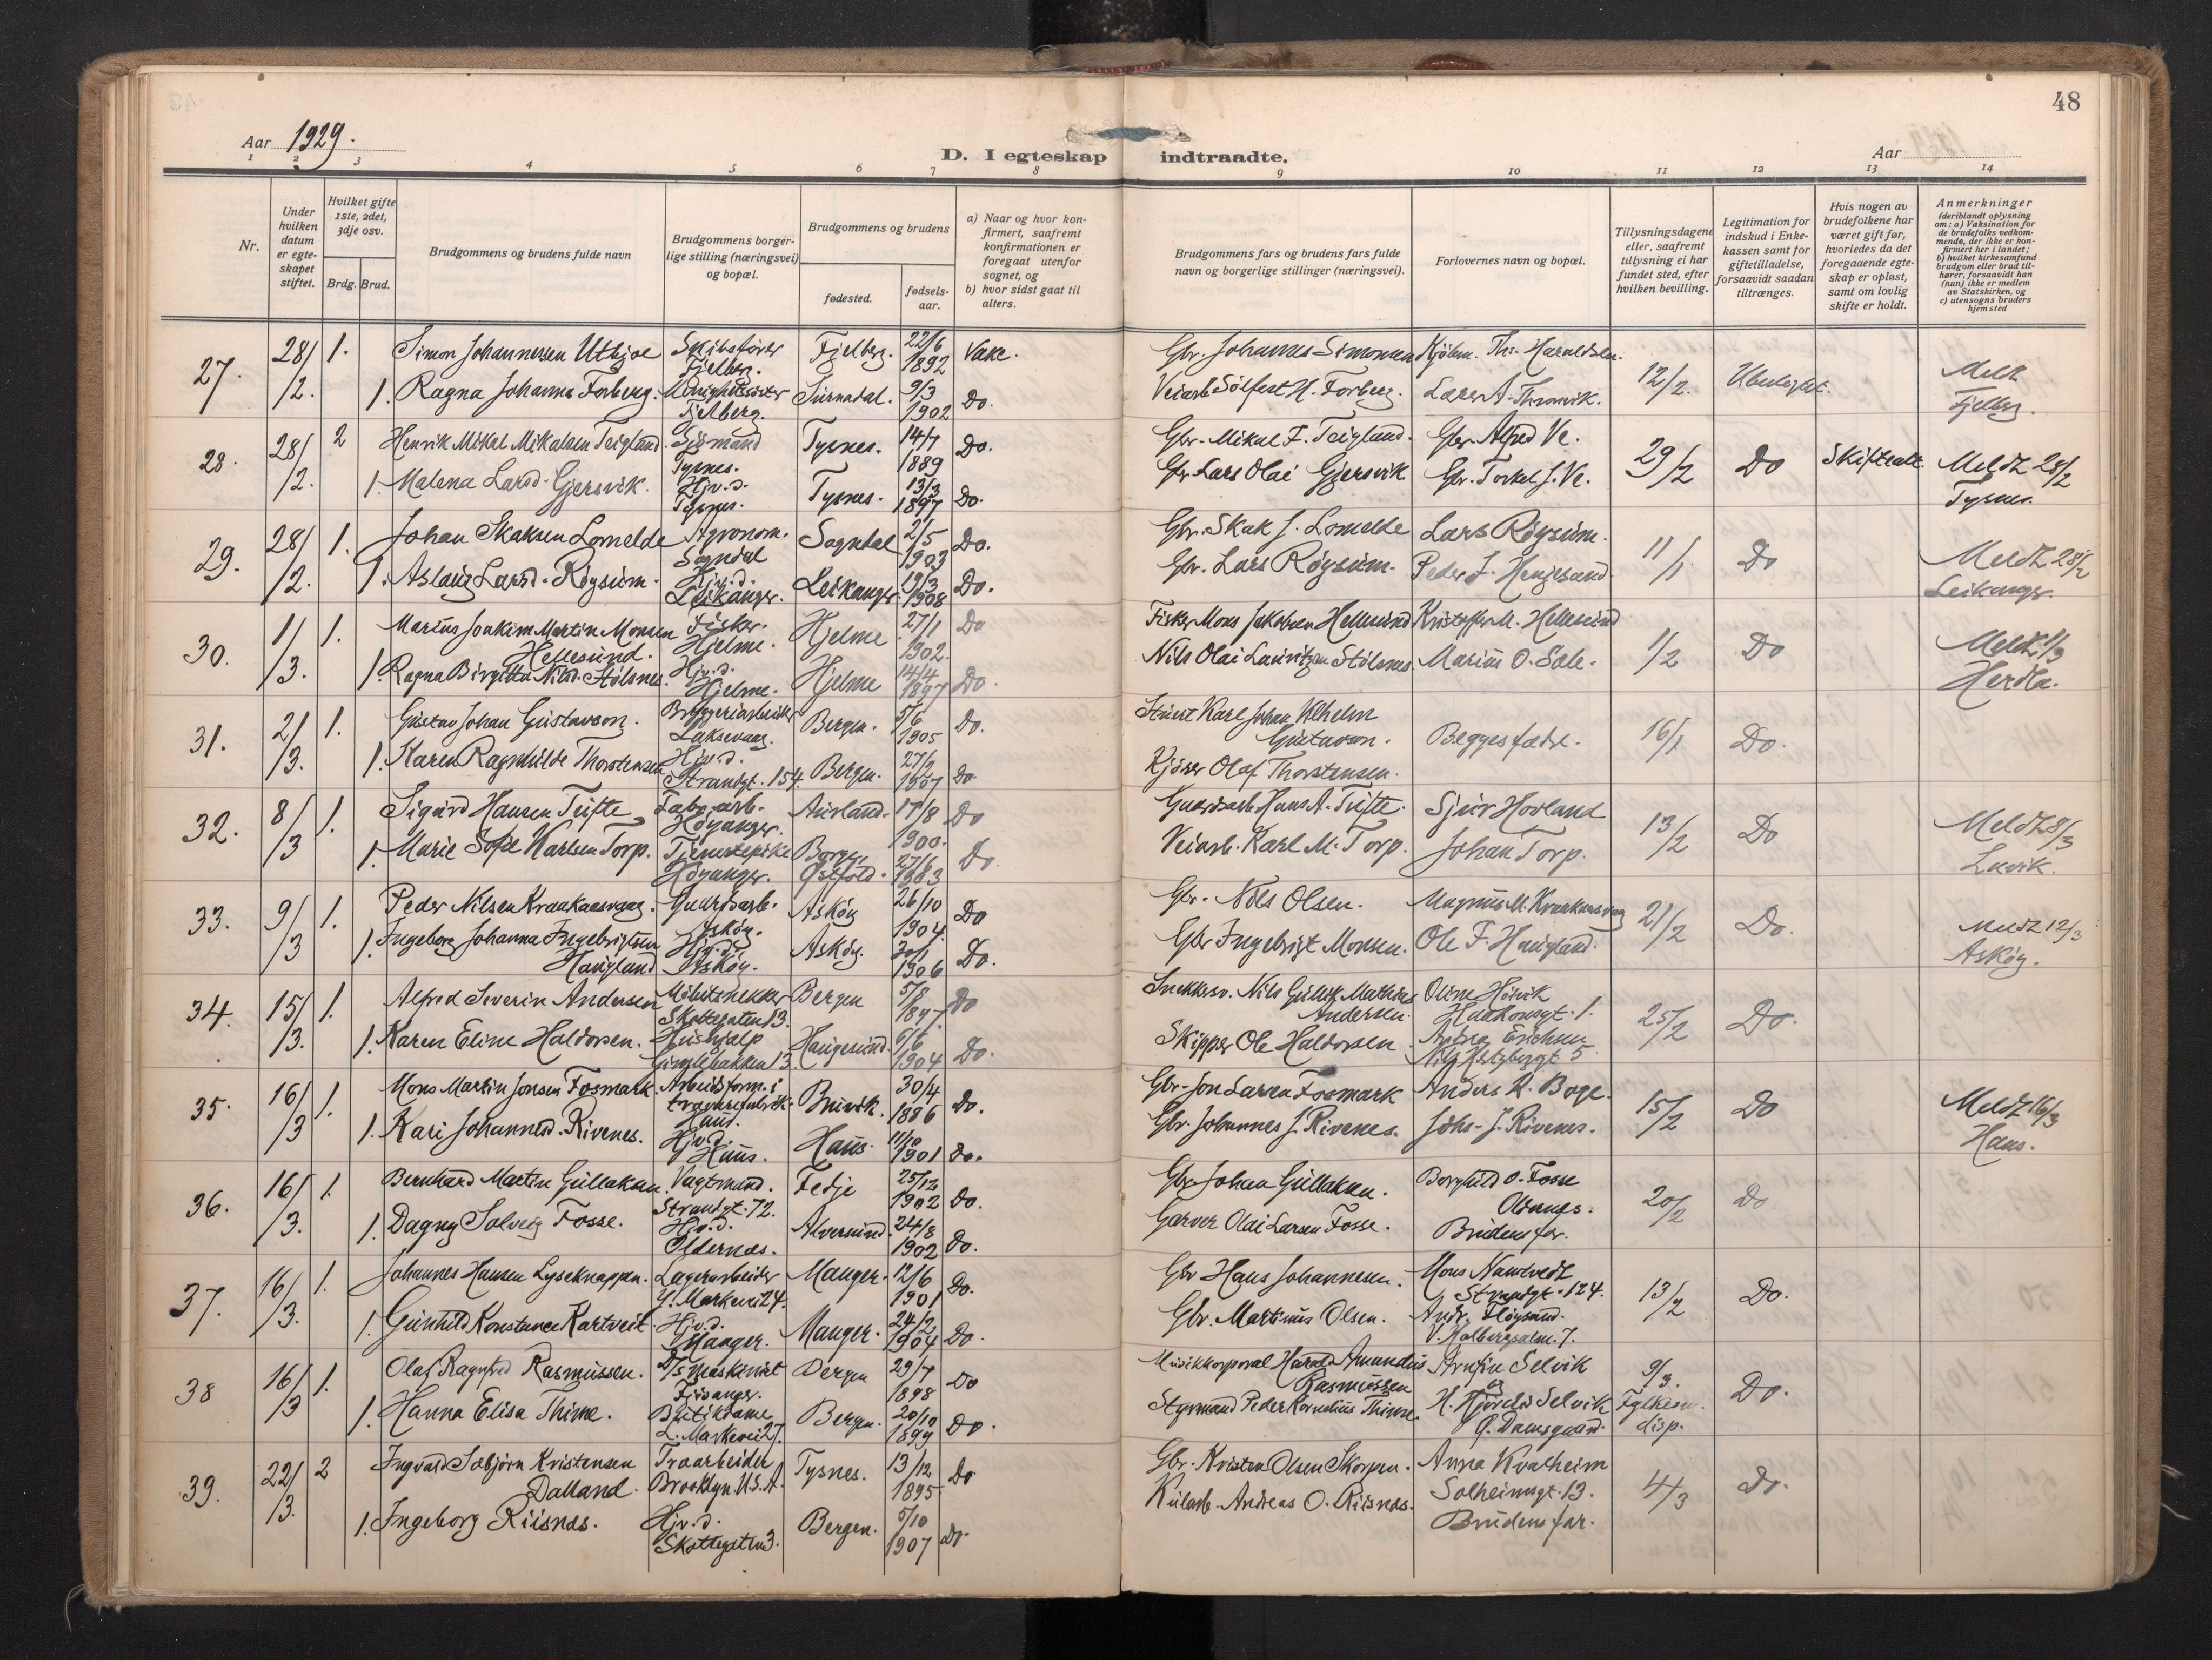 48
Aar 1929.
D. I egteskap indtraadte.
Aar
1 2 3 4 5 6 7 8 9 10 11 12 13 14
Nr.
Under hvilken datum er egteskapet stiftet.
Hvilket gifte 1ste, 2det, 3dje osv.
Brdg. Brud.
Brudgommens og brudens fulde navn
Brudgommens borgerlige stilling (næringsvei) og bopæl.
Brudgommens og brudens
fødested.
fødselsaar.
a) Naar og hvor konfirmert, saafremt konfirmationen er foregaat utenfor sognet, og
b) hvor sidst gaat til alters.
Brudgommens fars og brudens fars fulde navn og borgerlige stillinger (næringsvei).
Forlovernes navn og bopæl.
Tillysningsdagene eller, saafremt tillysning ei har fundet sted, efter hvilken bevilling.
Legitimation for indskud i Enkekassen samt for giftetilladelse, forsaavidt saadan tiltrænges.
Hvis nogen av brudefolkene har været gift før, hvorledes da det foregaaende egteskap er opløst, samt om lovlig skifte er holdt.
Anmerkninger
(deriblandt oplysning om: a) Vaksination for de brudefolks vedkommende, der ikke er konfirmert her i landet; b) hvilket kirkesamfund brudgom eller brud tilhører, forsaavidt han (hun) ikke er medlem av Statskirken, og c) utensogns bruders hjemsted
27. 28/2. 1. Simon Johannessen Utbjoe Skibsfører Fjelberg. Fjelberg. 22/6 1892 Gbr. Johannes Simonsen Kjøbm. Th. Haraldsen. 12/2.
1. Ragna Johanna Forberg. Menighetssøster Fjelberg. Surnadal. 9/3 1902 Do. Veiarb. Sølfest H. Forberg. Lars A. Fjelberg.
28. 28/2. 2 Henrik Mikal Mikalsen Teigland. Sjømand Tysnes. Tysnes. 14/7 1889 Do. Gbr. Mikal F. Teigland. Gbr. Alfred Ve. 29/2 Do Skifteatt. Meldt 28/2 Tysnes.
1. Malena Larsd. Gjersvik. Hjv.d. Tysnes. Tysnes. 13/3 1897 Do. Gbr. Lars Olai Gjersvik Gbr. Torkel J. Ve.
29. 28/2. 1. Johan Skaksen Lomelde Agronom. Sogndal Sogndal 2/5 1903 Do. Gbr. Skak J. Lomelde Lars Røysum. 11/1 Do Meldt 28/2 Leikanger.
1. Aslaug Larsd. Røysum. Hjv.d. Leikanger. Leikanger. 19/3 1908 Do. Gbr. Lars Røysum. Peder J. Henjesand.
30. 1/3. 1. Marius Joakim Martin Monsen Hellesund. Fisker. Hjelme. Hjelme 27/1 1902. Do Fisker Mons Jakobsen Hellesund Kristoffer M. Hellesund 1/2 Do Meldt 1/3 Herdla.
1. Ragna Birgitta Nilsd. Stølsnes. Hjv.d. Hjelme. Hjelme 14/4 1897 Do. Nils Olai Lauritzen Stølsnes Marius O. Sale.
31. 2/3. 1. Gustav Johan Gustavson. Bryggeriarbeider Laksevaag. Bergen. 5/6 1905 Do. Stuert Karl Johan Vilhelm Gustavson. Begges fædre. 16/1 Do.
1. Karen Ragnhilde Thorstensen Hjv.d. Strandgt. 154. Bergen. 27/2 1907 Do Kjører Olaf Thorstensen.
32. 8/3 1. Sigurd Hansen Tufte Fabr.arb. Høyanger. Aurland. 17/8 1900. Do Gaardsarb. Hans A. Tufte. Sjur Hovland 13/2 Do Meldt 8/3 Lavik.
1. Marie Sofie Karlsen Torp. Tjenestepike Høyanger. Borge, Østfold. 27/6 1883 Do. Veiarb. Karl M. Torp. Johan Torp.
33. 9/3 1. Peder Nilsen Kraakaasvaag. Gaardsarb. Askøy. Askøy 26/10 1904. Do Gbr. Nils Olsen. Magnus M. Kraakaasvaag 21/2 Do. Meldt 12/3 Askøy.
1. Ingeborg Johanna Ingebrigtsen Haugland Hjv.d. Askøy. Askøy. 30/1 1906 Do. Gbr. Ingebrigt Monsen. Ole F. Haugland.
34. 15/3. 1. Alfred Severin Andersen Møbelsnekker Skottegaten 13. Bergen 5/8 1897 Do Snekkersv. Nils Gullik Mathias Andersen. Oline Høivik Haakonsgt. 1. 25/2 Do.
1. Karen Eline Haldorsen. Hushjælp 13. Haugesund. 6/6 1904 Do. Skipper Ole Haldorsen Erichsen Nils Hertzbergsgt 5
35. 16/3 1. Mons Martin Jonsen Fosmark. Arbeidsform. i trævarefabrik. Haus. Bruvik. 30/4 1886 Do. Gbr. Jon Larsen Fosmark Anders K. Boge. 15/2 Do Meldt 16/3 Haus.
1. Kari Johannesd. Rivenes. Hjv.d. Haus. Haus. 11/10 1901 Do. Gbr. Johannes J. Rivenes. Johs. J. Rivenes.
36. 16/3. 1. Bernhard Martin Gullaksen. Vagtmand. Strandgt. 72. Fedje 25/12 1902 Do. Gbr. Johan Gullaksen. Borghild O. Fosse Oldernes. 20/2 Do
1. Dagny Solveig Fosse. Hjv.d. Oldernes. Alversund. 24/8 1902 Do. Garver Olai Larsen Fosse. Brudens far.
37. 16/3. 1. Johannes Hansen Lyseknappen. Lagerarbeider L. Markevei 24. Manger. 12/6 1901 Do. Gbr Hans Johannesen. Mons Namtvedt Strandgt. 124. 13/2 Do.
1. Gunhild Konstance Kartveit. Hjv.d. Manger. Manger. 24/2 1904 Do. Gbr. Martinus Olsen. Andr. Fløysand. V. Holbergsalm. 7.
38 16/3 1. Olaf Ragnfred Rasmussen. D/S maskinist Fjøsanger. Bergen 29/7 1898 Do Musikkorporal Harald Amandus Rasmussen Arnfin Selvik og 9/3. Fylkesm. disp. Do.
1. Hanna Elisa Thime. Butikdame L. Markevei 27. Bergen. 20/10 1899 Do. Styrmand Peder Kornelius Thime H. Hjørdis Selvik G. Damsgaard.
39. 22/3. 2 Ingvald Sæbjørn Kristensen Dalland. Træarbeider Brooklyn. U.S.A. Tysnes. 13/12 1895 Do Gbr. Kristen Olsen Skorpen. Anna Kvalheim Solheimsgt. 13. 4/3 Do.
1. Ingeborg Riisnæs. Hjv.d. Skottegaten 3. Bergen. 5/10 1907 Do. Kularb. Andreas O. Riisnæs. Brudens far.